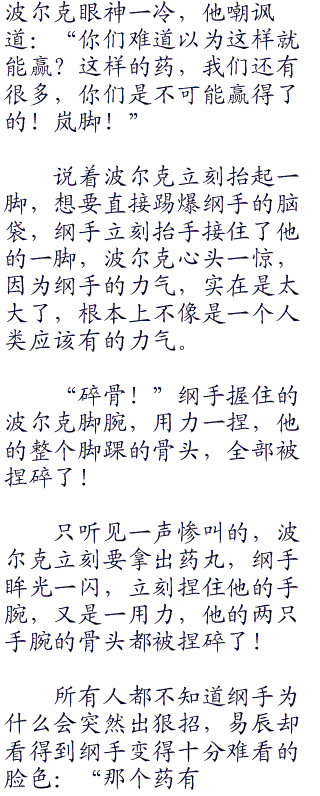 波尔克眼神一冷，他嘲讽
道：“你们难道以为这样就
能赢？这样的药，我们还有
很多，你们是不可能赢得了
的！岚脚！”
说着波尔克立刻抬起一
脚，想要直接踢爆纲手的脑
袋，纲手立刻抬手接住了他
的一脚，波尔克心头一惊，
因为纲手的力气，实在是太
大了，根本上不像是一个人
类应该有的力气。
“碎骨！”纲手握住的
波尔克脚腕，用力一捏，他
的整个脚踝的骨头，全部被
捏碎了！
只听见一声惨叫的，波
尔克立刻要拿出药丸，纲手
眸光一闪，立刻捏住他的手
腕，又是一用力，他的两只
手腕的骨头都被捏碎了！
所有人都不知道纲手为
什么会突然出狠招，易辰却
看得到纲手变得十分难看的
脸色：“那个药有